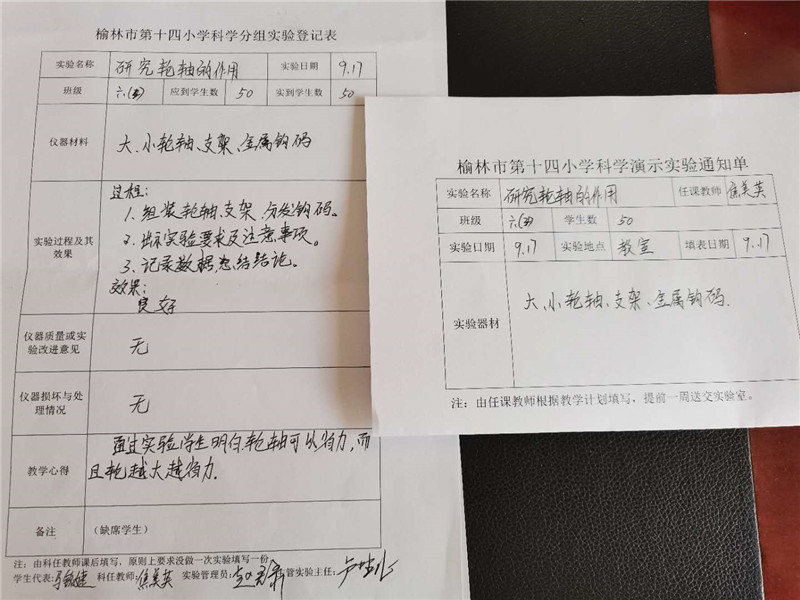 榆林市第十四小学科学分组实验登记表
实验名称 研究轮轴的作用 实验日期 9.17
班级 应到学生数 50 实到学生数 50
仪器材料 大、小轮轴、支架、金属钩码
实验过程及其效果 过程：
1、组装轮轴、支架、分发钩码。
2、出示实验要求及注意事项。
3、记录数据总结结论。
效果：
良好
仪器质量或实验改进意见 无
仪器损坏与处理情况 无
教学心得 通过实验学生明白轮轴可以省力,而
且轮越大越省力.
备注 （缺席学生）
注：由科任教师课后填写，原则上要求没做一次实验填写一份
学生代表: 科任教师:焦美英 实验管理员: 管实验主任:
榆林市第十四小学科学演示实验通知单
实验名称 研究轮轴的作用 任课教师 焦美英
班级 学生数 50
实验日期 9.17 实验地点 教室 填表日期 9.17
实验器材 大、小轮轴、支架、金属钩码.
注：由任课教师根据教学计划填写，提前一周送交实验室。